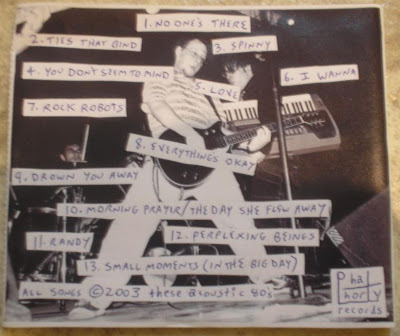 1. NO ONE'S THERE
2. TIES THAT BIND
3. SPINNY
4. YOU DON'T SEEM TO MIND
5. LOVE
6. I WANNA
7. ROCK ROBOTS
8. EVERYTHINGS OKAY
9. DROWN YOU AWAY
10. MORNING PRAYER/THE DAY SHE FLEW AWAY
11. RANDY
12. PERPLEXING BEINGS
13. SMALL MOMENTS (IN THE BIG DAY)
ALL SONGS © 2003 these acoustic 80s
Phat
Phorty
records